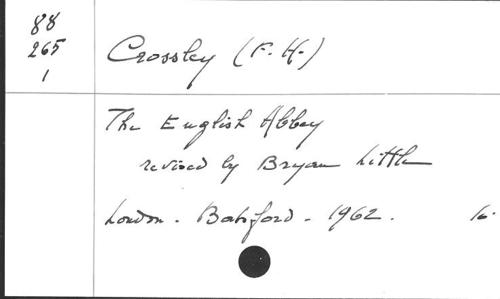 88
265
1
Crossley (F. H.)
The English Abbey
revised by Bryan Little
London - Batsford - 1962.
16.